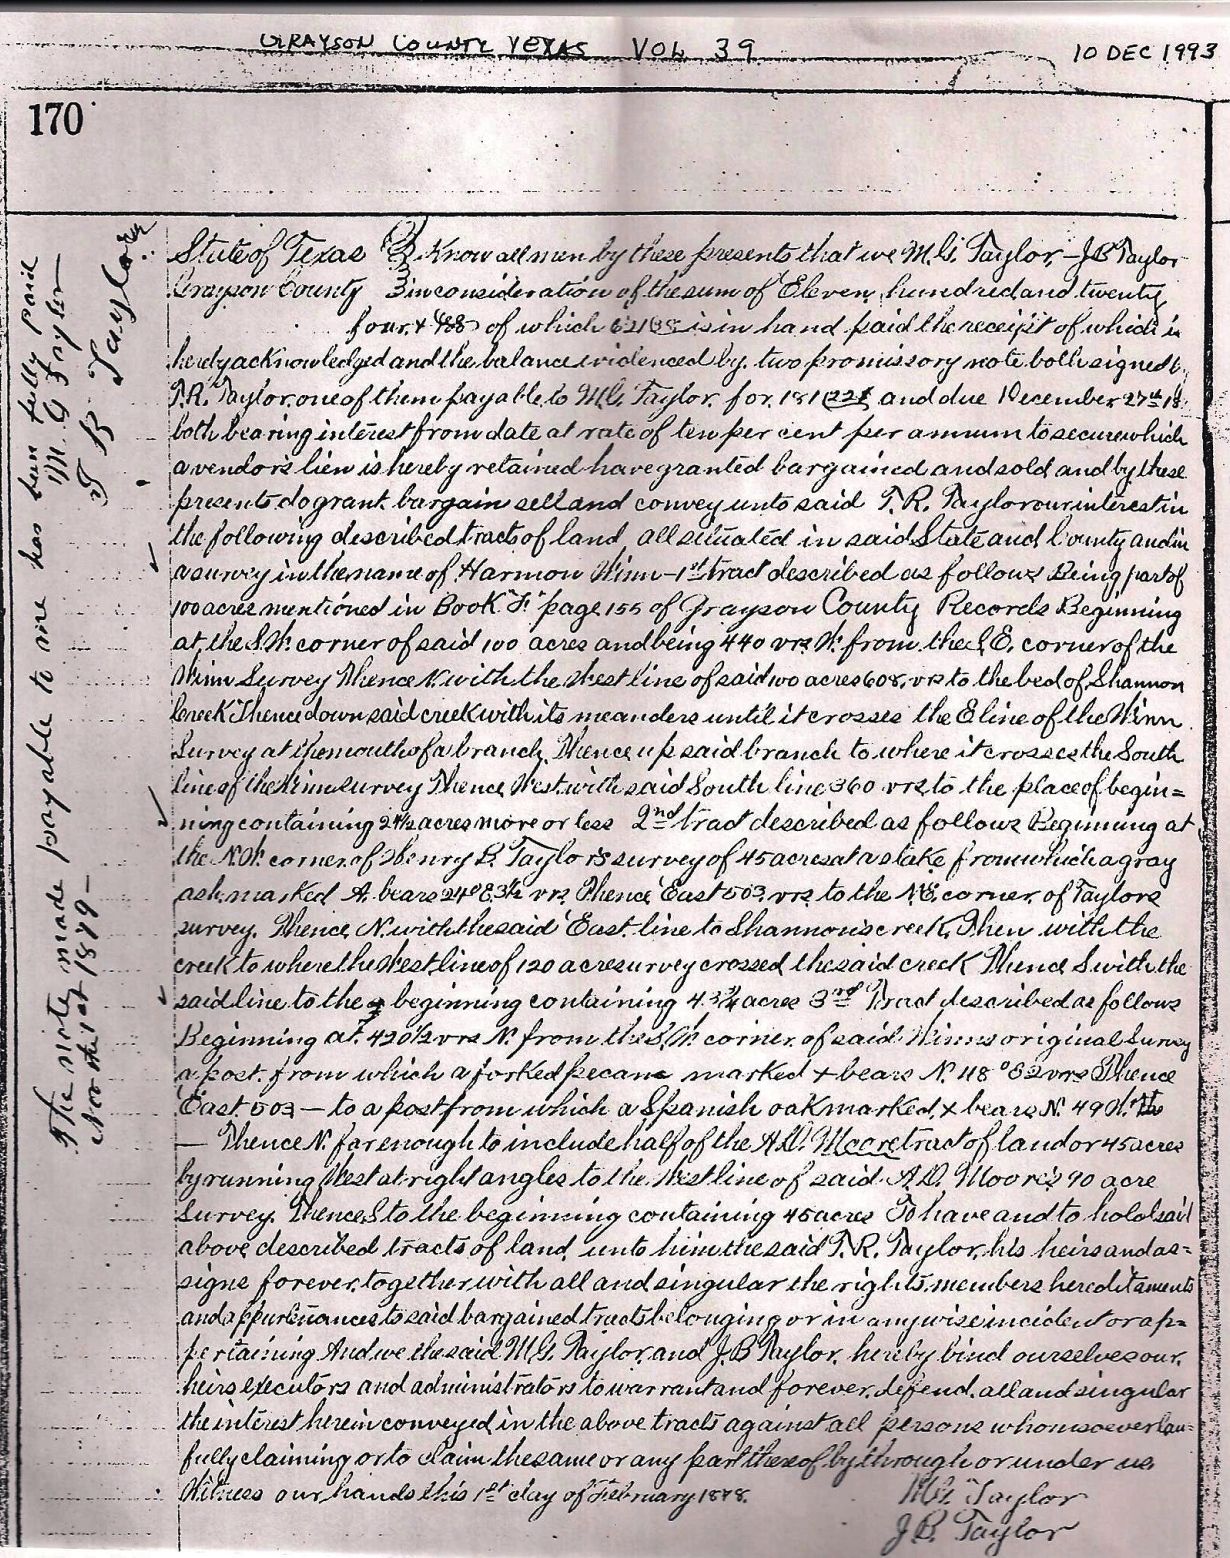 GRAYSON COUNTY TEXAS VOL 39
10 DEC 1993
170
State of Texas Know all men by these presents that we M.G. Taylor, J B Taylor
Grayson County in consideration of the sum of Eleven hundred and twenty
four & of which is in hand paid the receipt of which is
hereby acknowledged and the balance evidenced by two promissory note both signed
T.R. Taylor one of them payable to M.G. Taylor for and due December 27th 18
both bearing interest from date at rate of ten per cent per annum to secure which
a vendor's lien is hereby retained have granted bargained and sold and by these
presents do grant bargain sell and convey unto said T.R. Taylor our interest in
the following described tracts of land, all situated in said State and County and in
a survey in the name of Harmon Winn - 1st tract described as follows Being part of
100 acres mentioned in Book "F" page 155 of Grayson County Records Beginning
at the S.W. corner of said 100 acres and being 440 vrs W. from the S.E. corner of the
Winn Survey Thence N. with the West line of said 100 acres 608 vrs to the bed of Shannon
Creek Thence down said creek with its meanders until it crosses the E line of the Winn
Survey at the mouth of a branch, Thence up said branch to where it crosses the South
line of the Winn survey Thence West with said South line 360 vrs to the place of begin=
ning containing 24½ acres more or less 2nd tract described as follows Beginning at
the N.W. corner of Henry B. Taylor's survey of 45 acres at a stake from which a gray
ash marked A. bears vrs. Thence East 503 vrs to the N.E. corner of Taylors
survey. Thence N. with the said East line to Shannon's creek, Then with the
creek to where the West line of 120 acre survey crossed the said creek Thence S. with the
said line to the beginning containing 43¾ acres 3rd Tract described as follows
Beginning at 420½ vrs N. from the S.W. corner of said Winns original Survey
a post from which a forked pecan marked X bears N. 48° 32 vrs Thence
East 503 — to a post from which a Spanish oak marked X bears N. 49 W.
— Thence N. far enough to include half of the A.D. Moore tract of land or 45 acres
by running West at right angles to the West line of said A.D. Moore's 90 acre
Survey. Thence S to the beginning containing 45 acres To have and to hold said
above described tracts of land, unto him the said T.R. Taylor, his heirs and as=
signs forever, together with all and singular the rights, members hereditaments
and appurtenances to said bargained tracts belonging or in anywise incident or ap=
pertaining And we the said M.G. Taylor and J.B Taylor, hereby bind ourselves our
heirs executors and administrators to warrant and forever defend, all and singular
the interest herein conveyed in the above tracts against all persons whomsoever law=
fully claiming or to claim the same or any part thereof by through or under us.
Witness our hands this 1st day of February 1878.
M.G. Taylor
J.B. Taylor
The note made payable to me has been fully paid
Nov the 1st 1879 — M G Taylor
J B Taylor